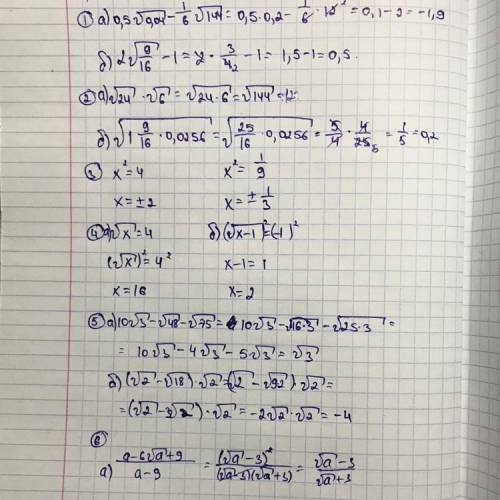 ① а) 0,5√0,04 − 1/6 √144 = 0,5·0,2 − 1/6 · 12² = 0,1 − 2 = −1,9
б) 2√9/16 − 1 = 2 · 3/4₂ − 1 = 1,5 − 1 = 0,5.
② а) √24 · √6 = √24·6 = √144 = 12
б) √1 9/16 · 0,0256 = √25/16 · 0,0256 = 5/4 · 4/25₅ = 1/5 = 0,2
③ x² = 4 x² = 1/9
x = ±2 x = ± 1/3
④ а) √x = 4 б) (√x−1)² = (−1)²
(√x)² = 4² x−1 = 1
x = 16 x = 2
⑤ а) 10√3 − √48 − √75 = 10√3 − √16·3 − √25·3 =
= 10√3 − 4√3 − 5√3 = √3
б) (√2 − √18) · √2 = (√2 − √92) √2 =
= (√2 − 3√2) · √2 = −2√2 · √2 = −4
⑥
а) a−6√a+9 / a−9 = (√a−3)² / (√a−3)(√a+3) = √a−3 / √a+3